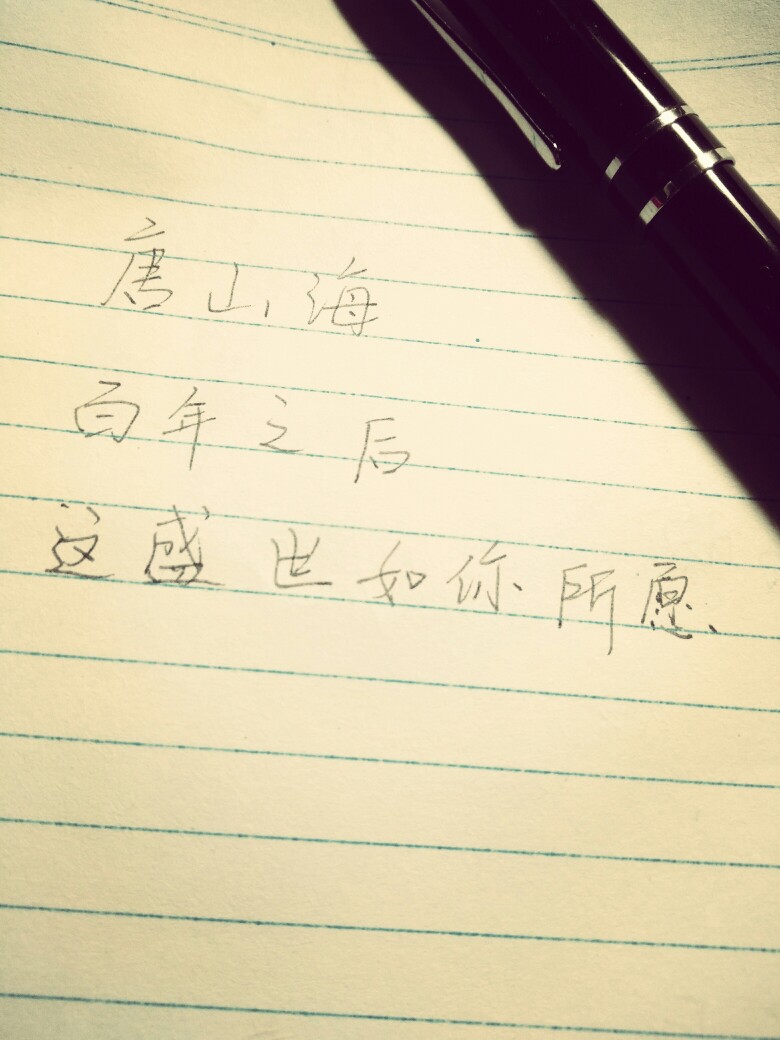 唐山海
百年之后
这盛世如你所愿、